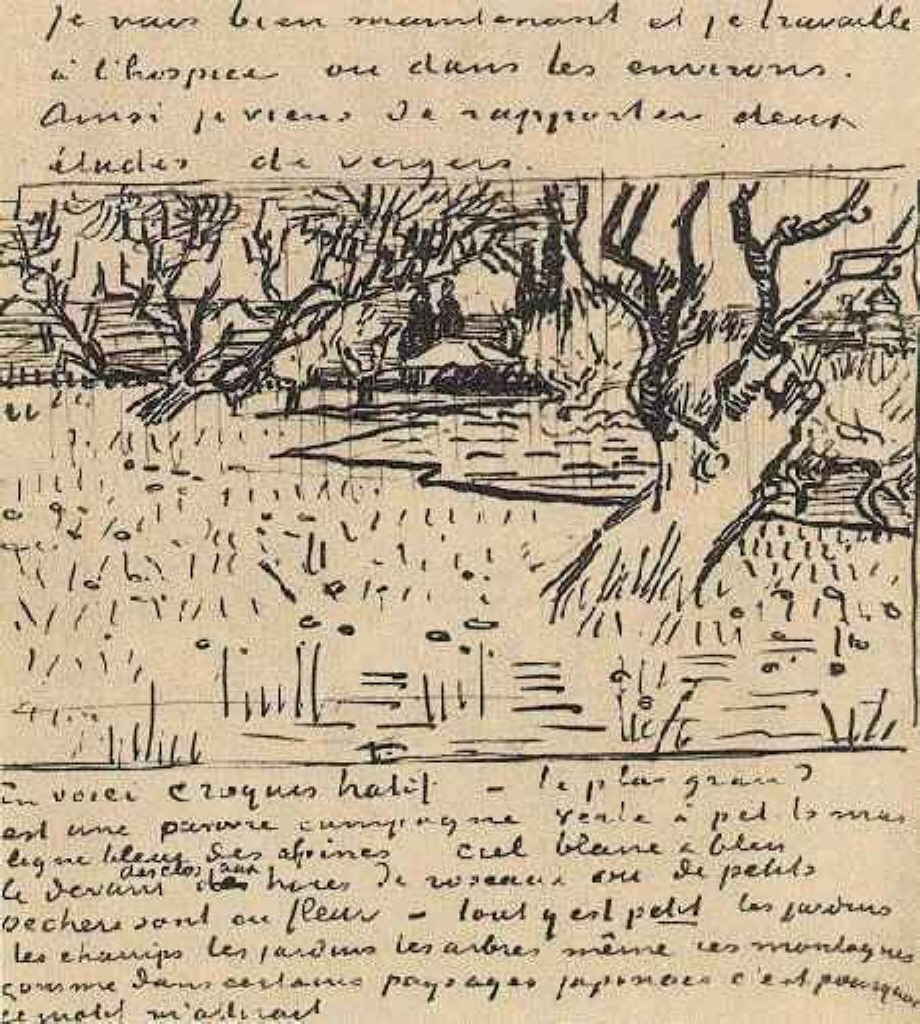 je vais bien maintenant et je travaille
à l'hospice ou dans les environs.
Ainsi je viens de rapporter deux
études de vergers.
En voici croquis hatif – le plus grand
est une pauvre campagne verte à petits mas
ligne bleue des alpines ciel blanc & bleu
des clos aux
le devant haies de roseaux où de petits
pechers sont en fleur – tout y est petit les jardins
les champs les jardins les arbres même ces montagnes
comme dans certains paysages japonais c'est pourquoi
ce motif m'attirait